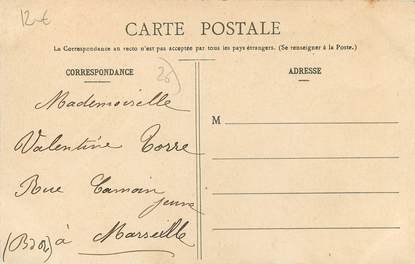 12€
CARTE POSTALE
La Correspondance au recto n'est pas acceptée par tous les pays étrangers. (Se renseigner à la Poste.)
CORRESPONDANCE
26
ADRESSE
Mademoiselle
M
Valentine Torre
Rue Camoin
jeune
(Bdr) à Marseille